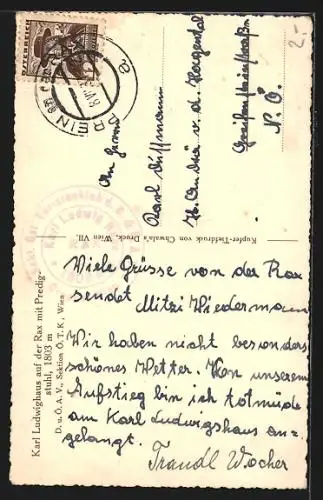 2.-
ÖSTERREICH
PREIN
An Herrn
Karl
St. Andrä v. d. Hagental
N. Ö.
Kupfer-Tiefdruck von Chwala's Druck, Wien VII.
Karl Ludwighaus auf der Rax mit Predig-
stuhl, 1803 m
D. u. Ö. A. V., Sektion Ö. T. K., Wien
Viele Grüsse von der Rax
sendet Mitzi Wiedermann
Wir haben nicht besonders
schönes Wetter. Von unserem
Aufstieg bin ich totmüde
am Karl Ludwigshaus an-
gelangt.
Traudl Wocher